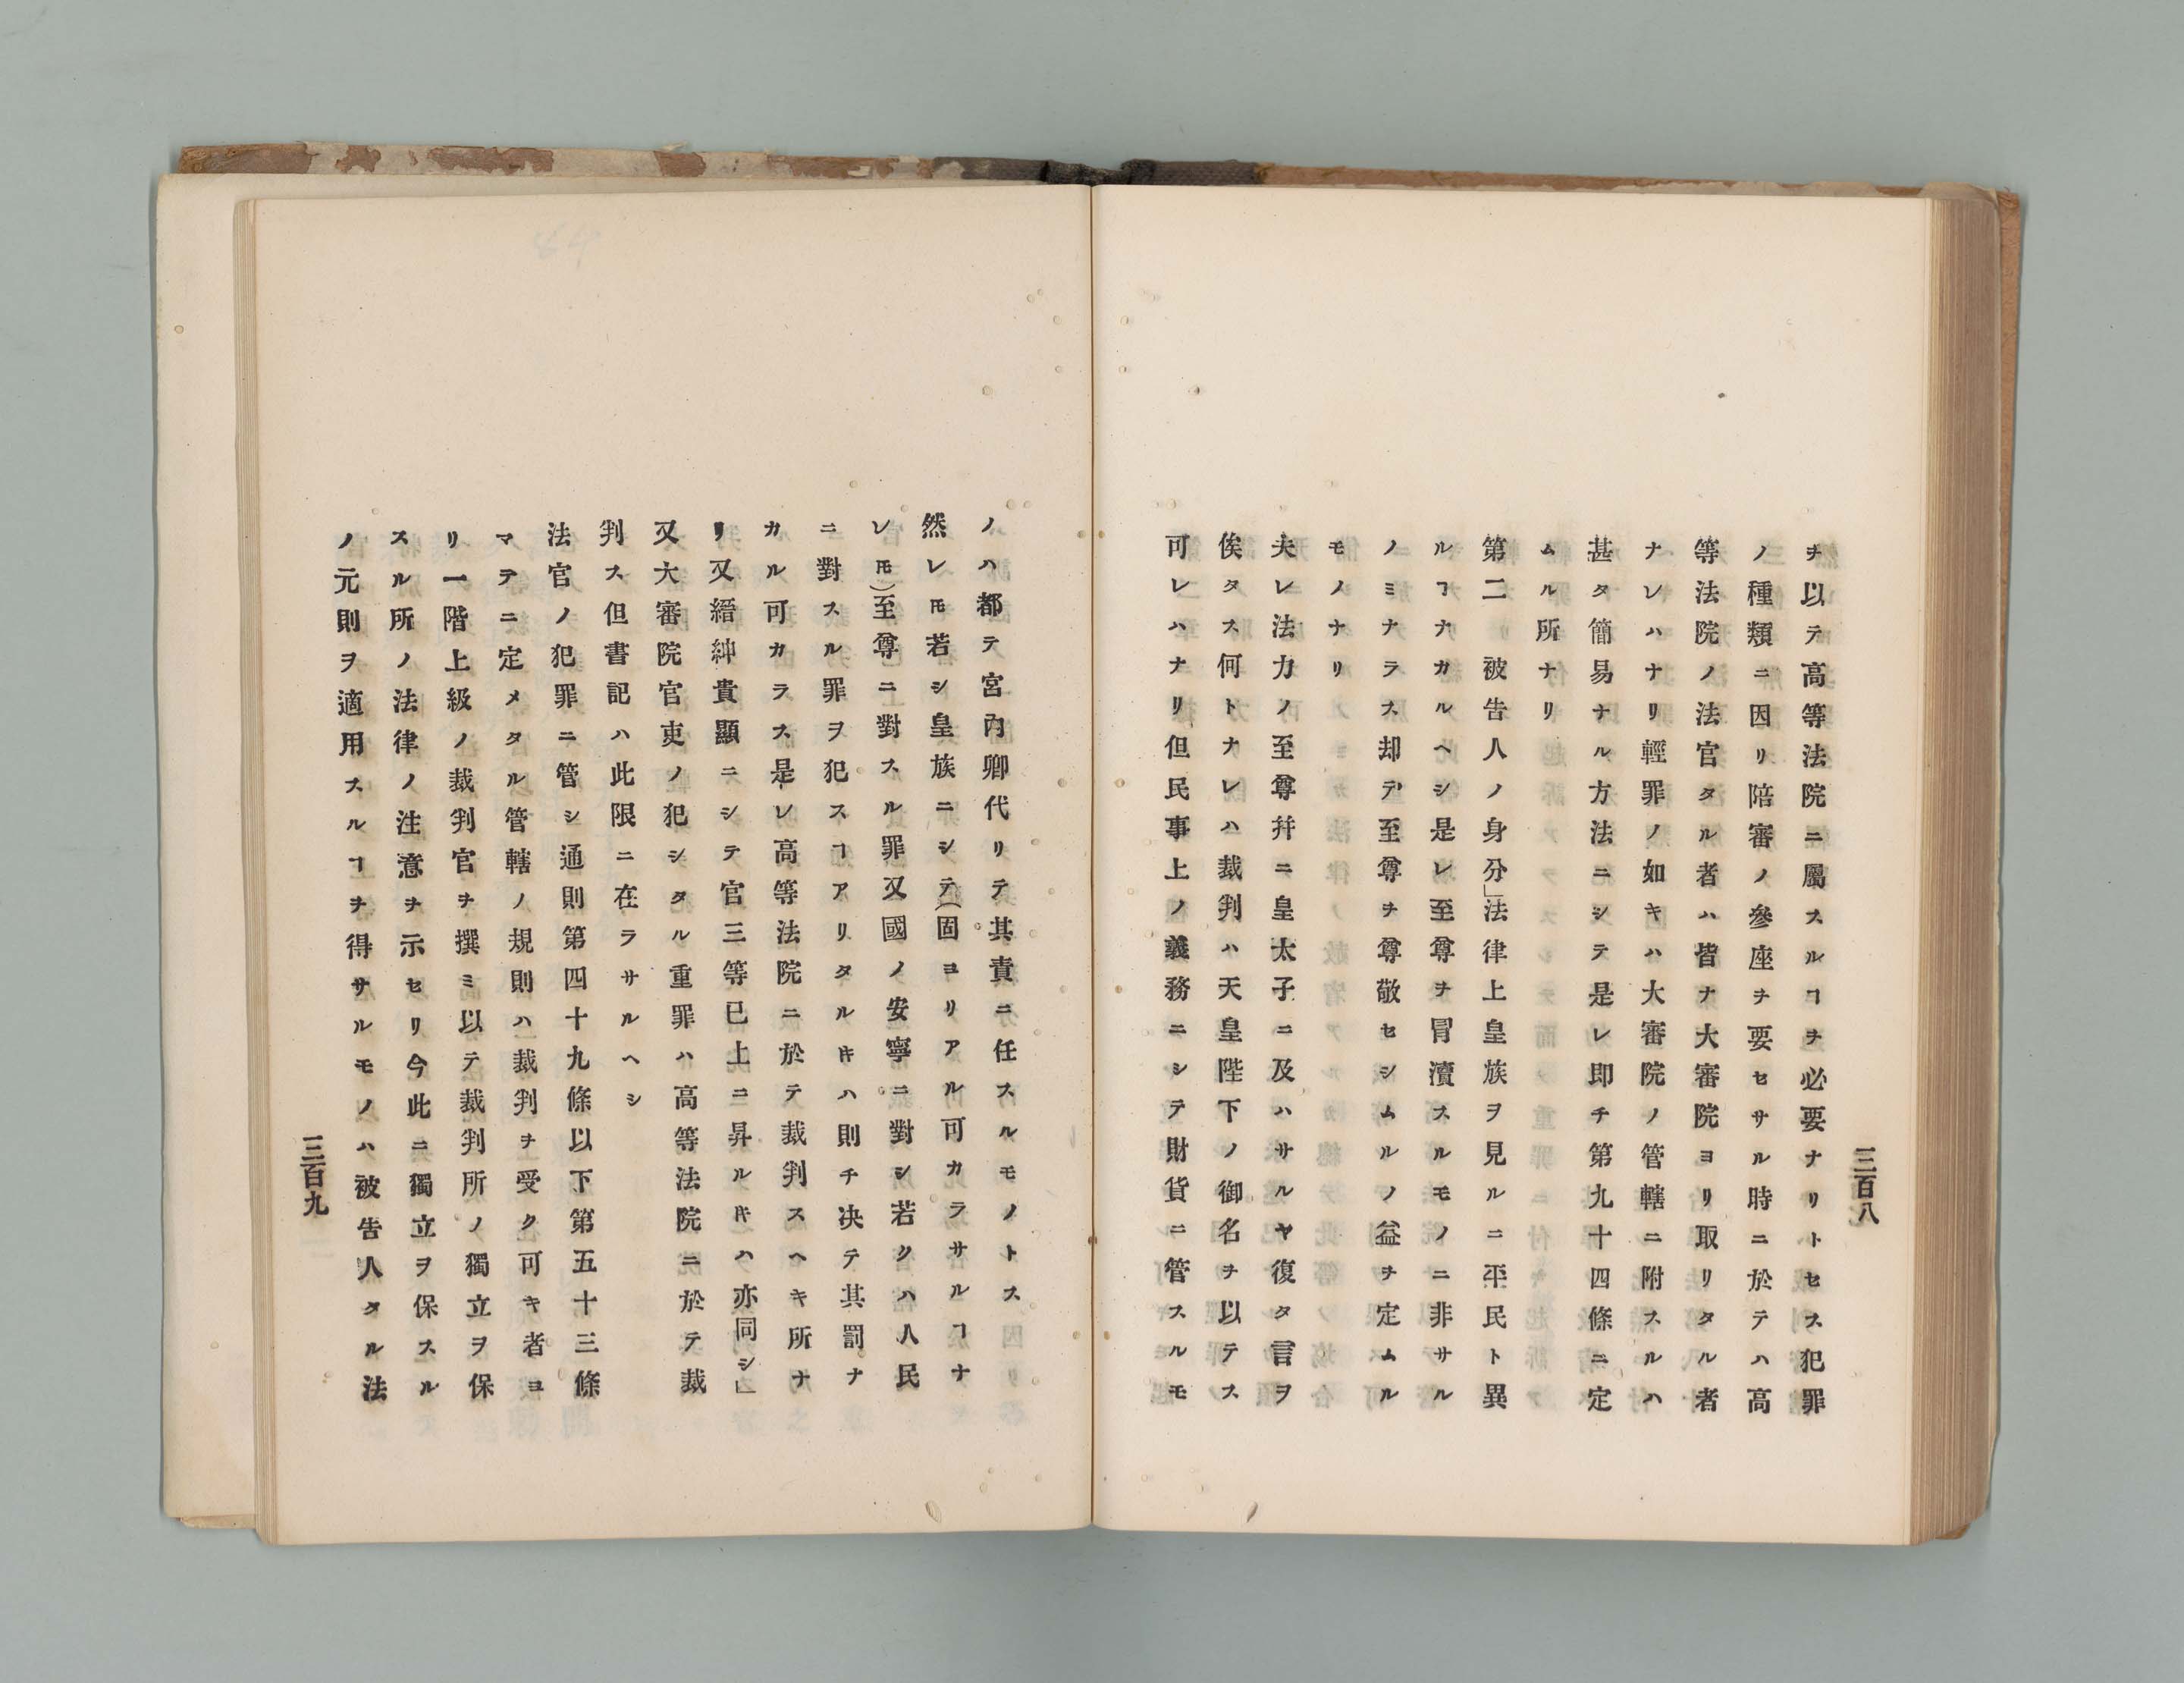 三百八
ヲ以テ高等法院ニ屬スルヿヲ必要ナリトセス犯罪
ノ種類ニ因リ陪審ノ參座ヲ要セサル時ニ於テハ高
等法院ノ法官タル者ハ皆ナ大審院ヨリ取リタル者
ナレハナリ輕罪ノ如キハ大審院ノ管轄ニ附スルハ
甚タ簡易ナル方法ニシテ是レ即チ第九十四條ニ定
ムル所ナリ
第二 被告人ノ身分」法律上皇族ヲ見ルニ平民ト異
ルヿナカルヘシ是レ至尊ヲ冐瀆スルモノニ非サル
ノミナラス却テ至尊ヲ尊敬セシムルノ益ヲ定ムル
モノナリ
夫レ法力ノ至尊幷ニ皇太子ニ及ハサルヤ復タ言ヲ
俟タス何トナレハ裁判ハ天皇陛下ノ御名ヲ以テス
可レハナリ但民事上ノ義務ニシテ財貨ニ管スルモ
ノハ都テ宮內卿代リテ其責ニ任スルモノトス
然レ𪜈若シ皇族ニシテ(固ヨリアル可カラサルヿナ
レ𪜈)至尊ニ對スル罪又國ノ安寧ニ對シ若クハ人民
ニ對スル罪ヲ犯スヿアリタルキハ則チ决テ其罰ナ
カル可カラス是レ高等法院ニ於テ裁判スヘキ所ナ
リ又縉紳貴顯ニシテ官三等已上ニ昇ルキハ亦同シ」
又大審院官吏ノ犯シタル重罪ハ高等法院ニ於テ裁
判ス但書記ハ此限ニ在ラサルヘシ
法官ノ犯罪ニ管シ通則第四十九條以下第五十三條
マテニ定メタル管轄ノ規則ハ裁判ヲ受ク可キ者ヨ
リ一階上級ノ裁判官ヲ撰ミ以テ裁判所ノ獨立ヲ保
スル所ノ法律ノ注意ヲ示セリ今此ニ獨立ヲ保スル
ノ元則ヲ適用スルヿヲ得サルモノハ被告人タル法
三百九